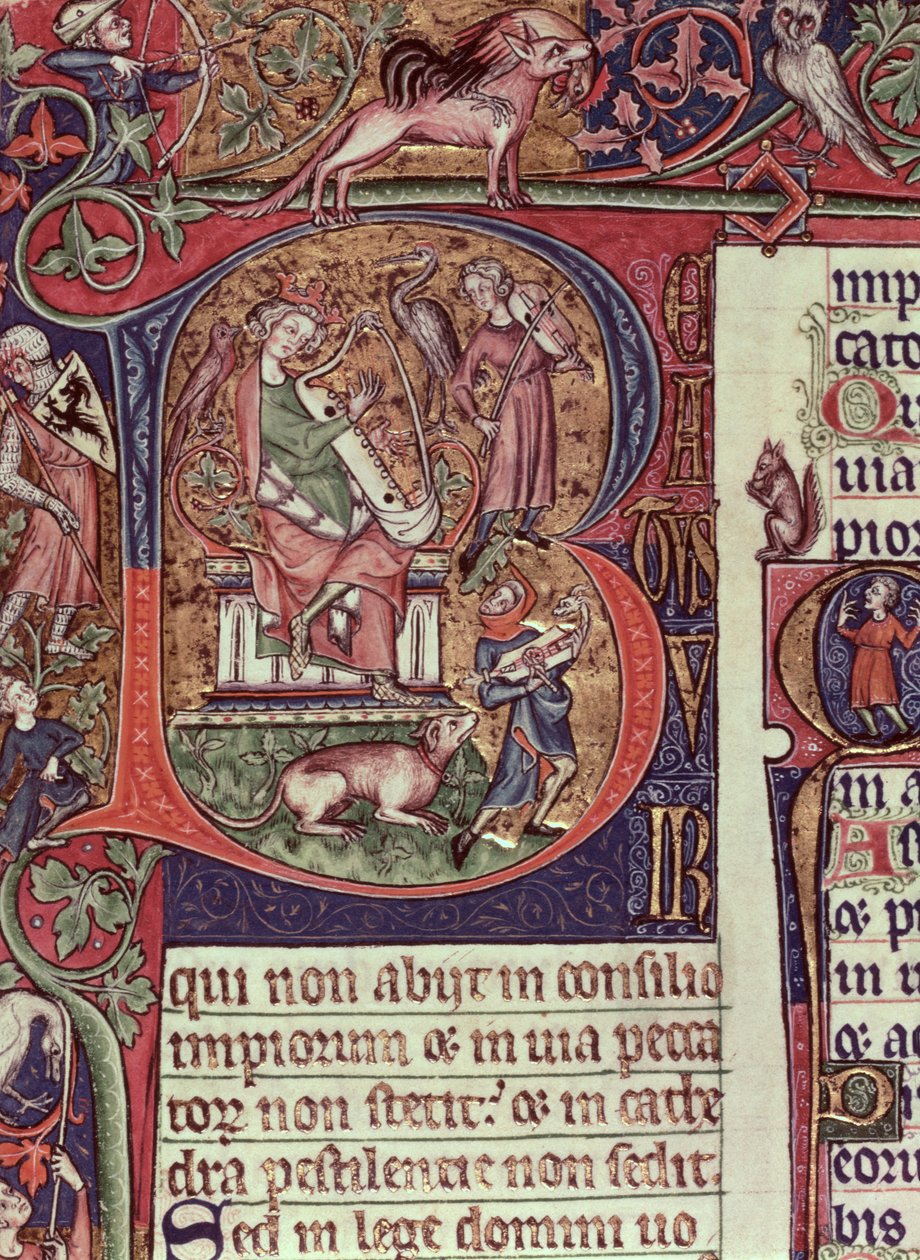 B
E
A
TVS
V
IR
qui non abijt in consilio
impiorum & in uia pecca
torꝝ non stetit: & in cathe
dra pestilencie non sedit.
Sed in lege domini uo
imp
cato
uia
pior
in a
& p
in
&
eoru
bis